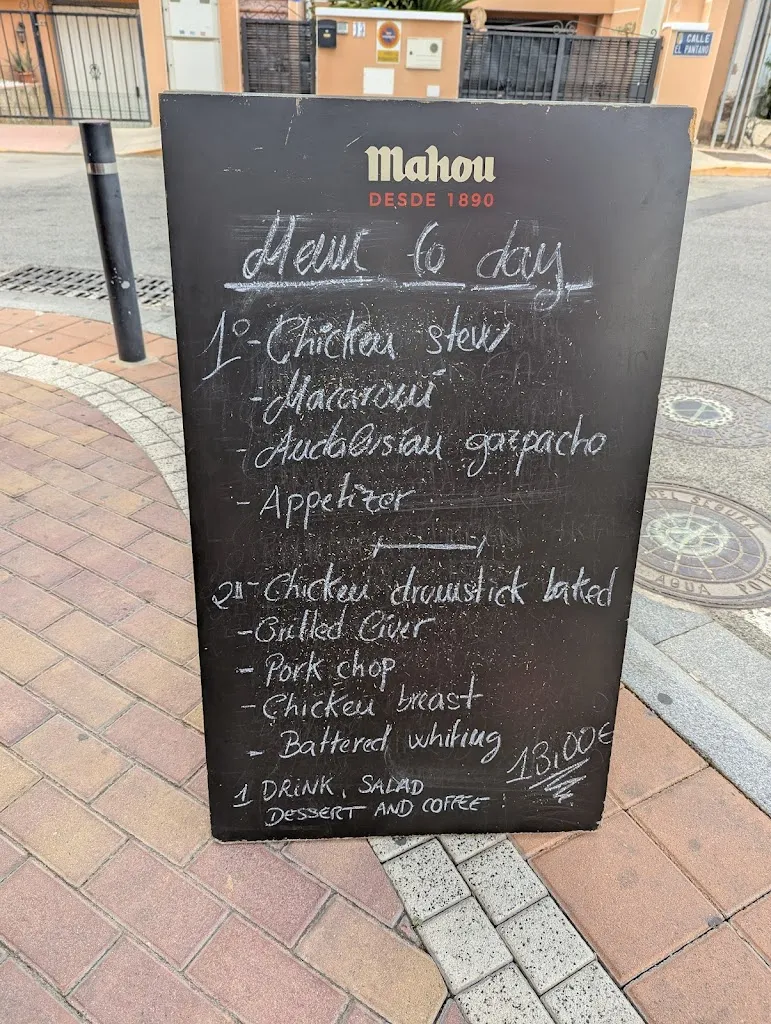 CALLE
EL PANTANO
Mahou
DESDE 1890
Menu to day
1º - Chicken stew
- Macaroni
- Andalusian gazpacho
- Appetizer
2º - Chicken drumstick baked
- Grilled liver
- Pork chop
- Chicken breast
- Battered whiting
13,00€
1 DRINK, SALAD
DESSERT AND COFFEE
AGUA